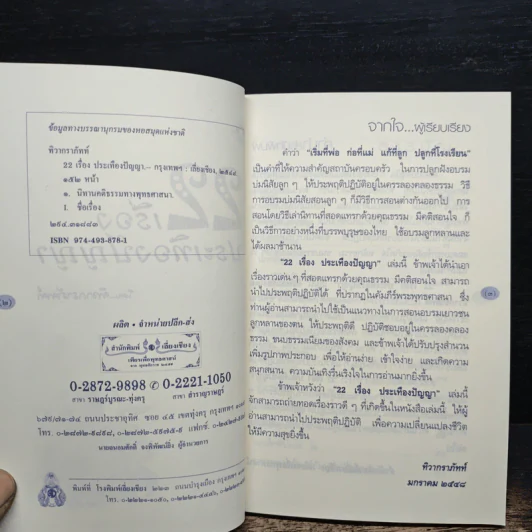 ข้อมูลทางบรรณานุกรมของหอสมุดแห่งชาติ
ทิวากราภัทท์
22 เรื่อง ประเทืองปัญญา.- กรุงเทพฯ : เลี่ยงเชียง, ๒๕๔๔.
๑๕๒ หน้า
๑. นิทานคติธรรมทางพุทธศาสนา.
I. ชื่อเรื่อง
๒๙๔.๓๑๘๘๓
ISBN 974-493-876-1
ผลิต • จำหน่ายปลีก-ส่ง
สำนักพิมพ์ เลี่ยงเชียง
เพียรเพื่อพุทธศาสน์
0-2872-9898 0-2221-1050
สาขา ราษฎร์บูรณะ-ทุ่งครุ สาขา สำราญราษฎร์
๖๗๙/๗๑-๗๔ ถนนประชาอุทิศ ซอย ๔๕ เขตทุ่งครุ
นายอานนศักดิ์ จงพิพัฒน์ยิ่ง ผู้อำนวยการ
พิมพ์ที่ โรงพิมพ์เลี่ยงเชียง ๒๒๓ ถนนบำรุงเมือง กรุงเทพฯ
(๒)
จากใจ...ผู้เรียบเรียง
คำว่า "เริ่มที่พ่อ ก่อที่แม่ แก้ที่ลูก ปลูกที่โรงเรียน"
เป็นคำที่ให้ความสำคัญสถาบันครอบครัว ในการปลูกฝังอบรม
บ่มนิสัยลูก ๆ ให้ประพฤติปฏิบัติอยู่ในครรลองคลองธรรม วิธี
การอบรมบ่มนิสัยสอนลูก ๆ ก็มีวิธีการสอนต่างกันออกไป การ
สอนโดยวิธีเล่านิทานที่สอดแทรกด้วยคุณธรรม มีคติสอนใจ ก็
เป็นวิธีการอย่างหนึ่งที่บรรพบุรุษของไทย ใช้อบรมลูกหลานและ
ได้ผลมาช้านาน
"22 เรื่อง ประเทืองปัญญา" เล่มนี้ ข้าพเจ้าได้นำเอา
เรื่องราวเด่น ๆ ที่สอดแทรกด้วยคุณธรรม มีคติสอนใจ สามารถ
นำไปประพฤติปฏิบัติได้ ที่ปรากฏในคัมภีร์พระพุทธศาสนา ซึ่ง
ท่านผู้อ่านสามารถนำไปใช้เป็นแนวทางในการสอนอบรมเยาวชน
ลูกหลานของตน ให้ประพฤติดี ปฏิบัติชอบอยู่ในครรลองคลอง
ธรรม ขนบธรรมเนียมของสังคม และข้าพเจ้าได้ปรับปรุงสำนวน
เพิ่มรูปภาพประกอบ เพื่อให้อ่านง่าย เข้าใจง่าย และเกิดความ
สนุกสนาน ความบันเทิงรื่นเริงใจในการอ่านมากยิ่งขึ้น
ข้าพเจ้าหวังว่า "22 เรื่อง ประเทืองปัญญา" เล่มนี้
จักสามารถถ่ายทอดเรื่องราวดี ๆ ที่เกิดขึ้นในหนังสือเล่มนี้ ให้ผู้
อ่านสามารถนำไปประพฤติปฏิบัติ เพื่อความเปลี่ยนแปลงชีวิต
ให้มีความสุขยิ่งขึ้น
ทิวากราภัทท์
มกราคม ๒๕๔๘
(๓)